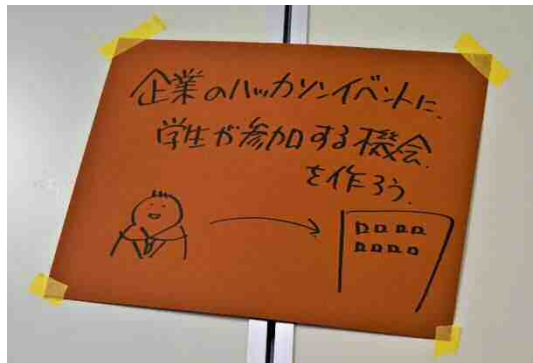 企業のハッカソンイベントに、
学生が参加する機会
を作ろう。